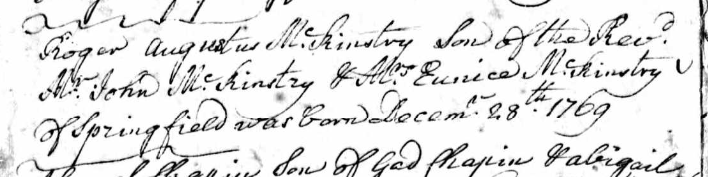 Roger Augustus McKinstry Son of the Revd.
Mr. John McKinstry & Mrs Eunice McKinstry
of Springfield was born Decemr. 28th. 1769
Chapin Son of Gad Chapin & abigail